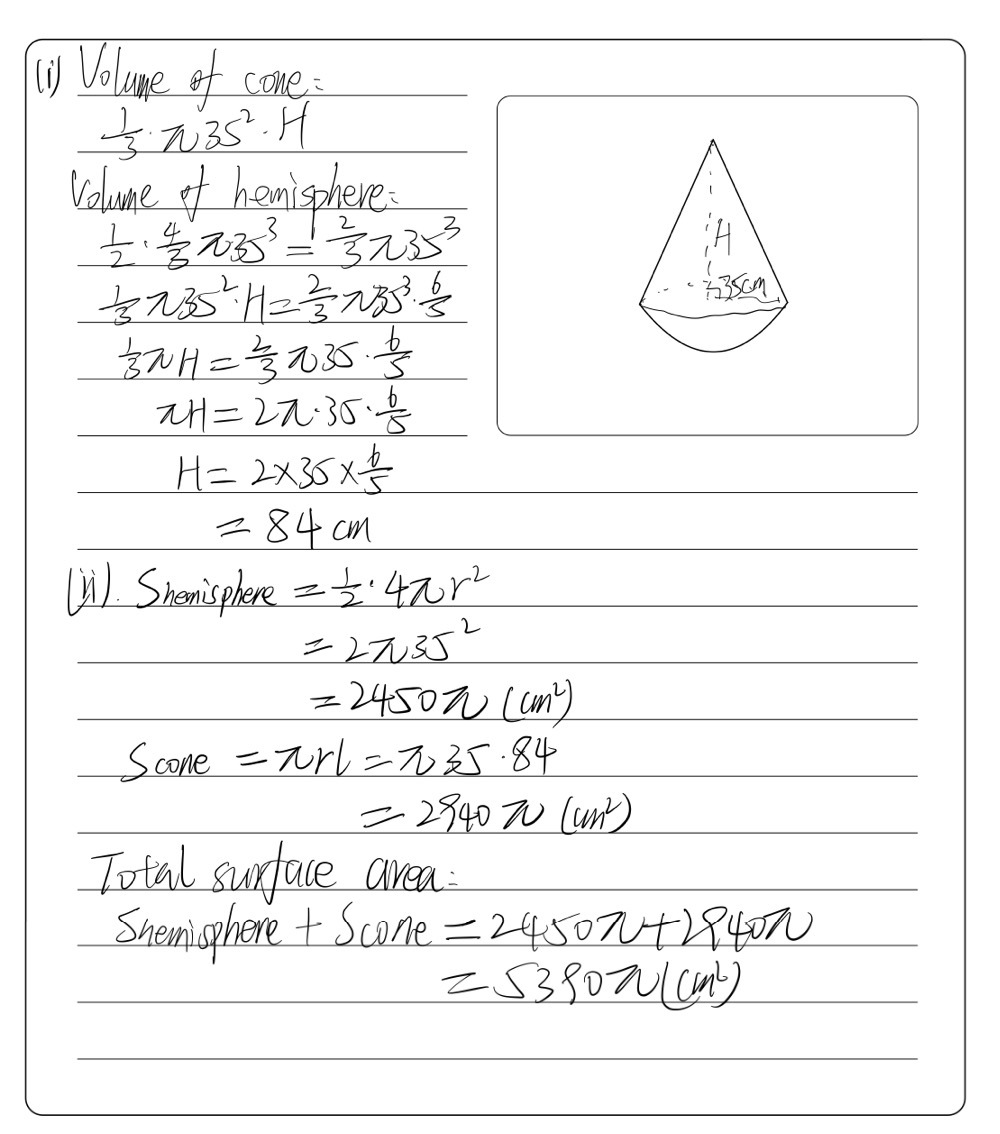 (i) Volume of cone:
1/3 · π35² · H
Volume of hemisphere:
1/2 · 4/3 π35³ = 2/3 π35³
1/3 π35² · H = 2/3 π35³ · 6/5
1/3 πH = 2/3 π35 · 6/5
πH = 2π · 35 · 6/5
H = 2×35×6/5
= 84 cm
H
35cm
(ii). Shemisphere = 1/2 · 4πr²
= 2π35²
= 2450π (cm²)
Scone = πrl = π35 · 84
= 2940π (cm²)
Total surface area:
Shemisphere + Scone = 2450π+2940π
= 5390π(cm²)